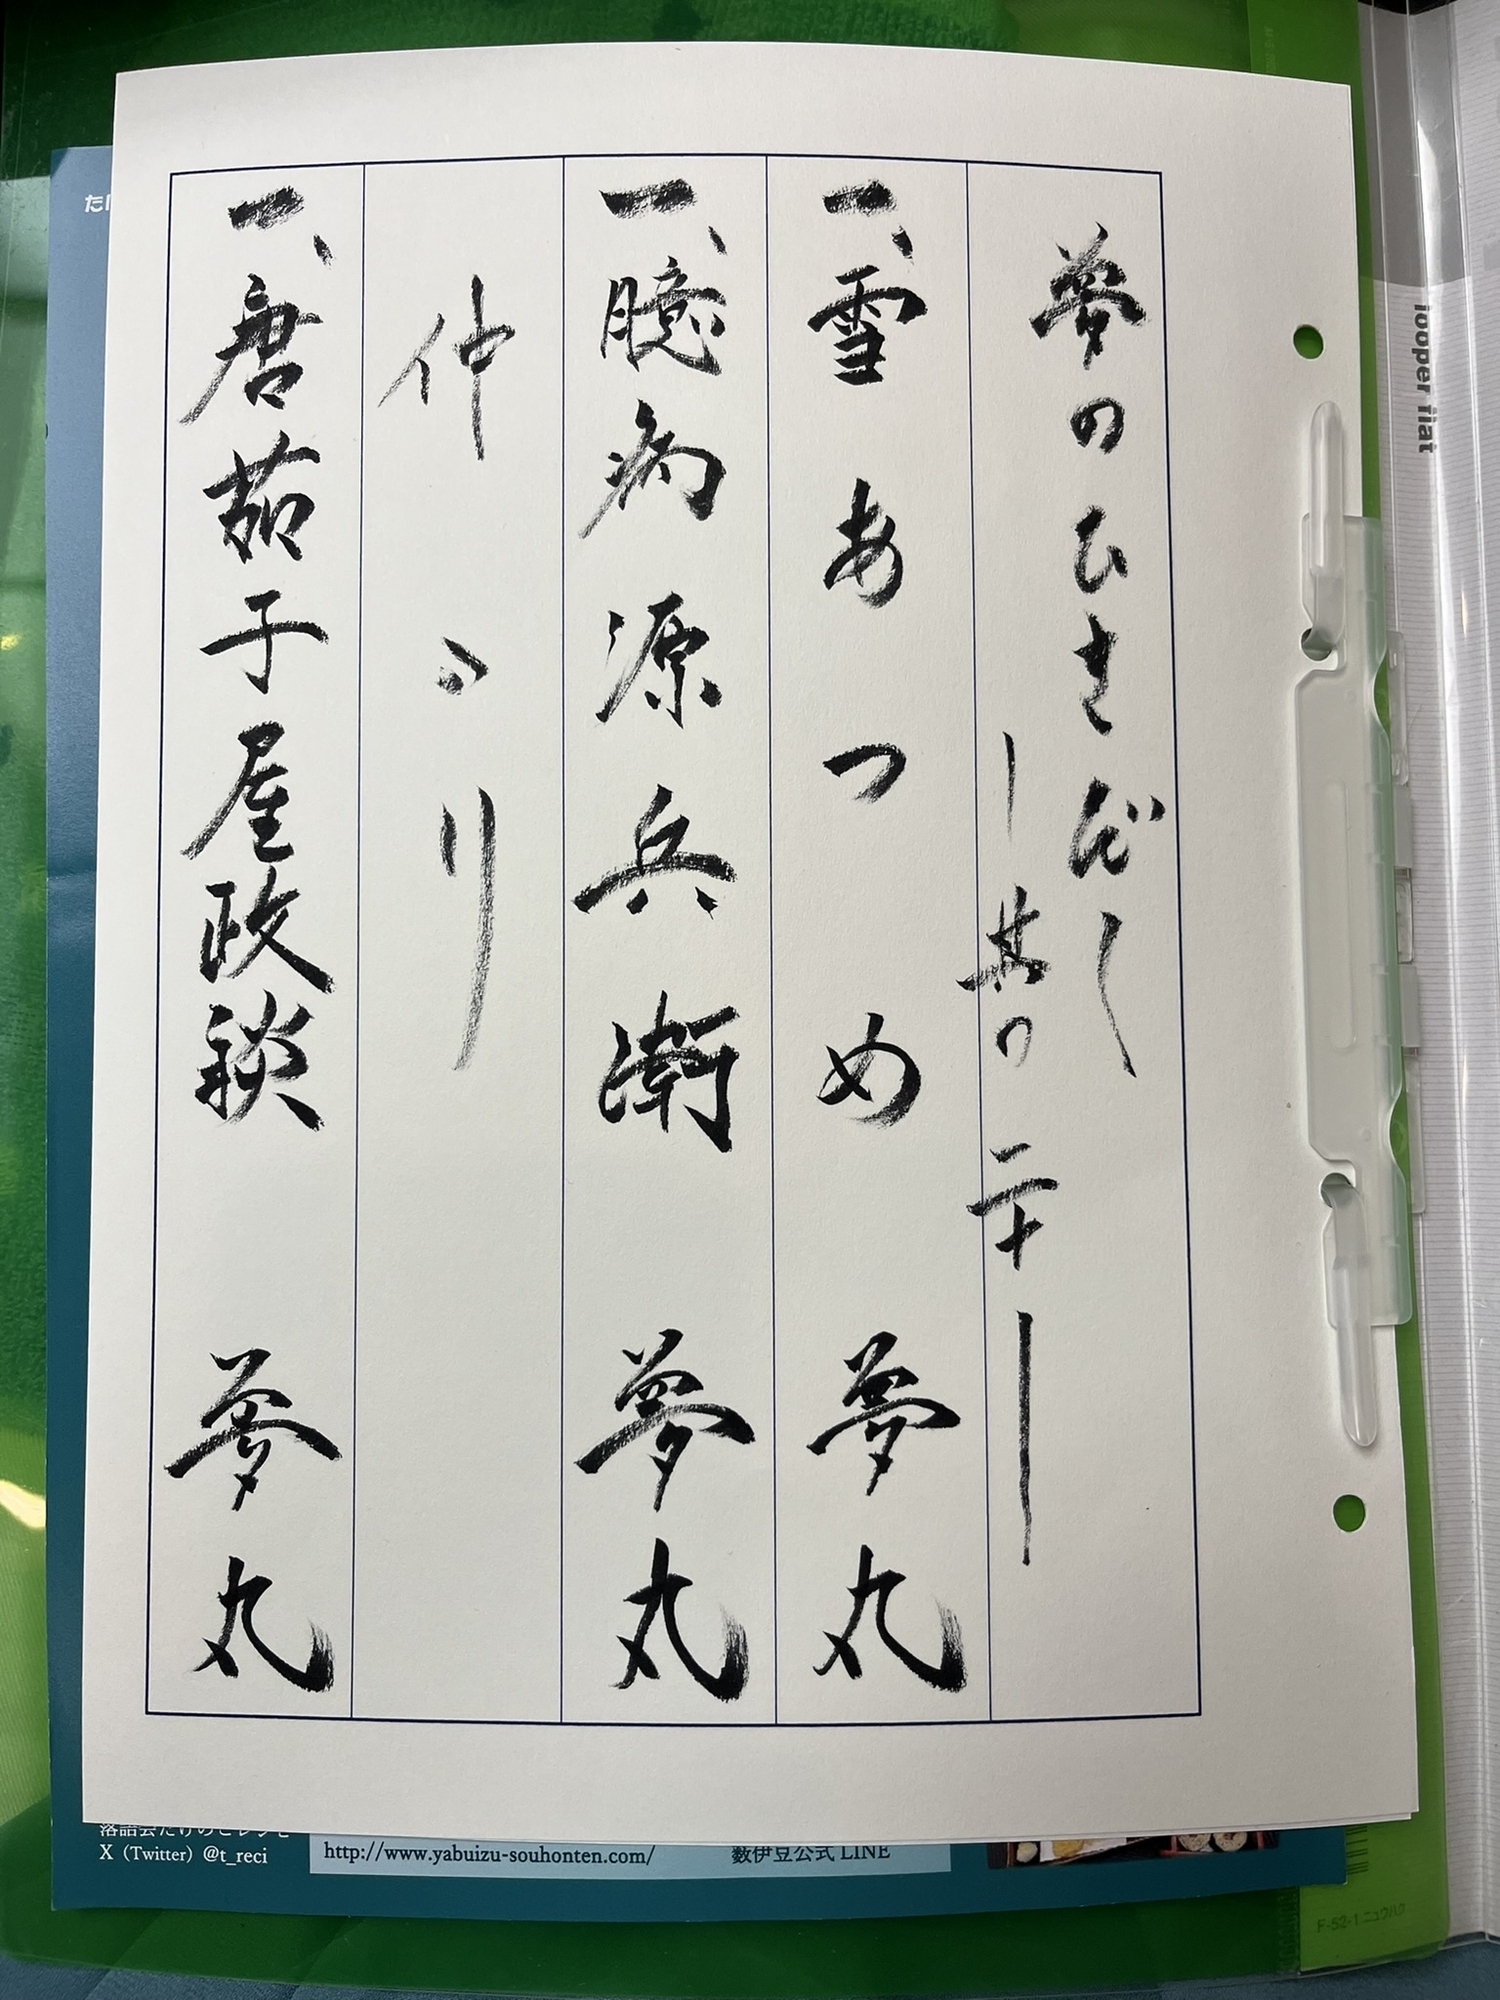 夢のひさだし
― 其の二十 ―
一、雪あつめ 夢丸
一、臆病源兵衛 夢丸
仲入り
一、唐茄子屋政談 夢丸
looper fiat
落語会たけのこレシピ
X（Twitter）@t_reci
http://www.yabuizu-souhonten.com/
藪伊豆公式 LINE